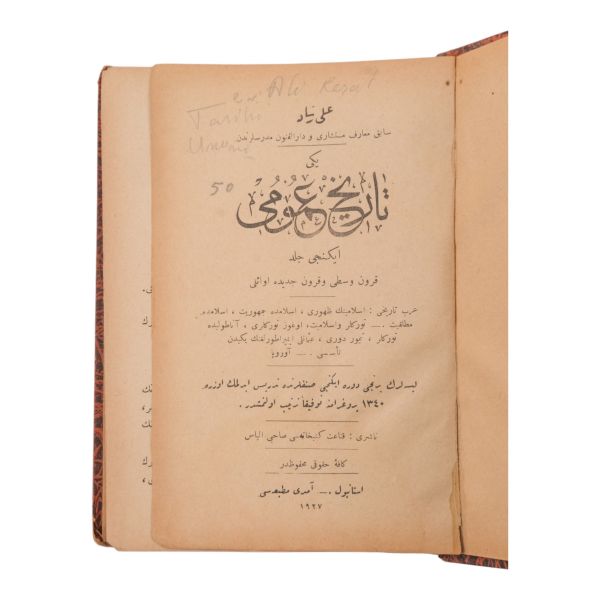 Ali Reşat
Tarihi
Umumi
50
علی رشاد
سابق معارف مستشاری و دارالفنون مدرسلرندن
یکی
تاریخ عمومی
ایکنجی جلد
قرون وسطی و قرون جدیده اوائلی
عرب تاریخی : اسلامیتك ظهوری ، اسلامده جمهوریت ، اسلامده
مطلقیت ... تورکلر واسلامیت، اوغوز تورکلری ، آناطولیده
تورکلر ، تیمور دوری ، عثمانلی ایمپراطورلغنك یکیدن
تأسسی ... آوروپا
لیسه‌لرك برنجی دوره ایکنجی صنفلرنده تدریس ایدلمك اوزره
١٣٤٠ پروغرامنه توفیقاً ترتیب اولنمشدر .
ناشری : قناعت کتبخانه‌سی صاحبی الیاس
کافهٔ حقوقی محفوظدر
استانبول ... آمدی مطبعه‌سی
١٩٢٧